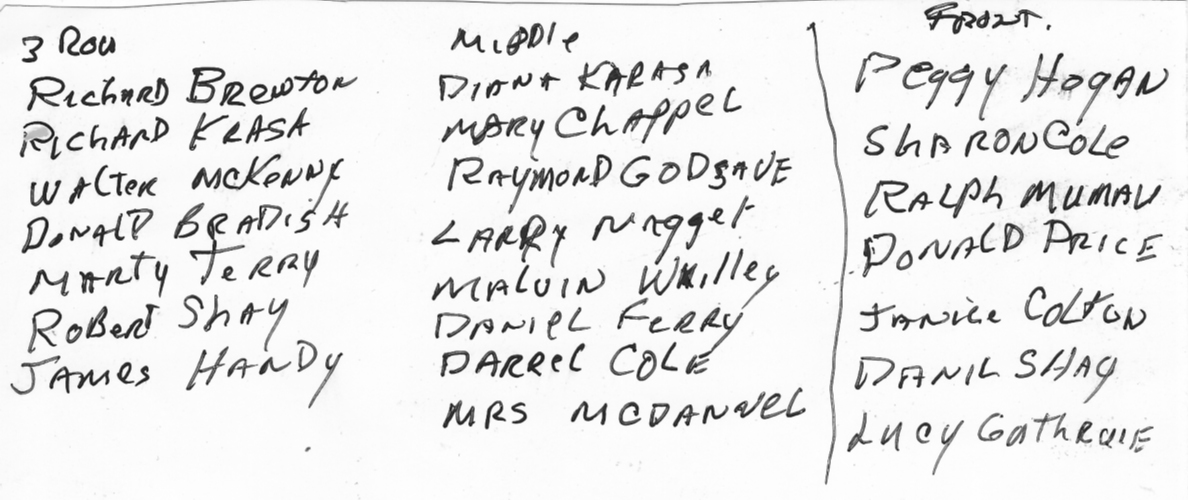 3 Row
Richard Brewton
Richard Krasa
Walter McKenny
Donald Bradish
Marty Terry
Robert Shay
James Handy
Middle
Diana Karasa
Mary Chappel
Raymond Godsave
Larry Nugget
Malvin Whilley
Daniel Ferry
Darrel Cole
Mrs McDannel
Front.
Peggy Hogan
Sharon Cole
Ralph Mumau
Donald Price
Janice Colton
Danil Shay
Lucy Gathruie